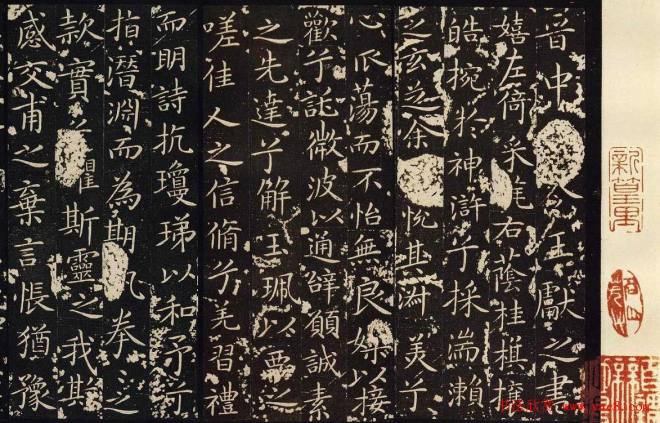 晉中令王獻之書
嬉左倚采旄右蔭桂棋攘
皓捥於神滸兮採湍瀨
之玄芝余悅其淑美兮
心振蕩而不怡無良媒以接
歡兮託微波以通辭願誠素
之先達兮解玉珮以要之
嗟佳人之信脩兮羌習禮
而明詩抗瓊珶以和予兮
指潛淵而為期執拳々之
款實兮懼斯靈之我欺
感交甫之棄言悵猶豫